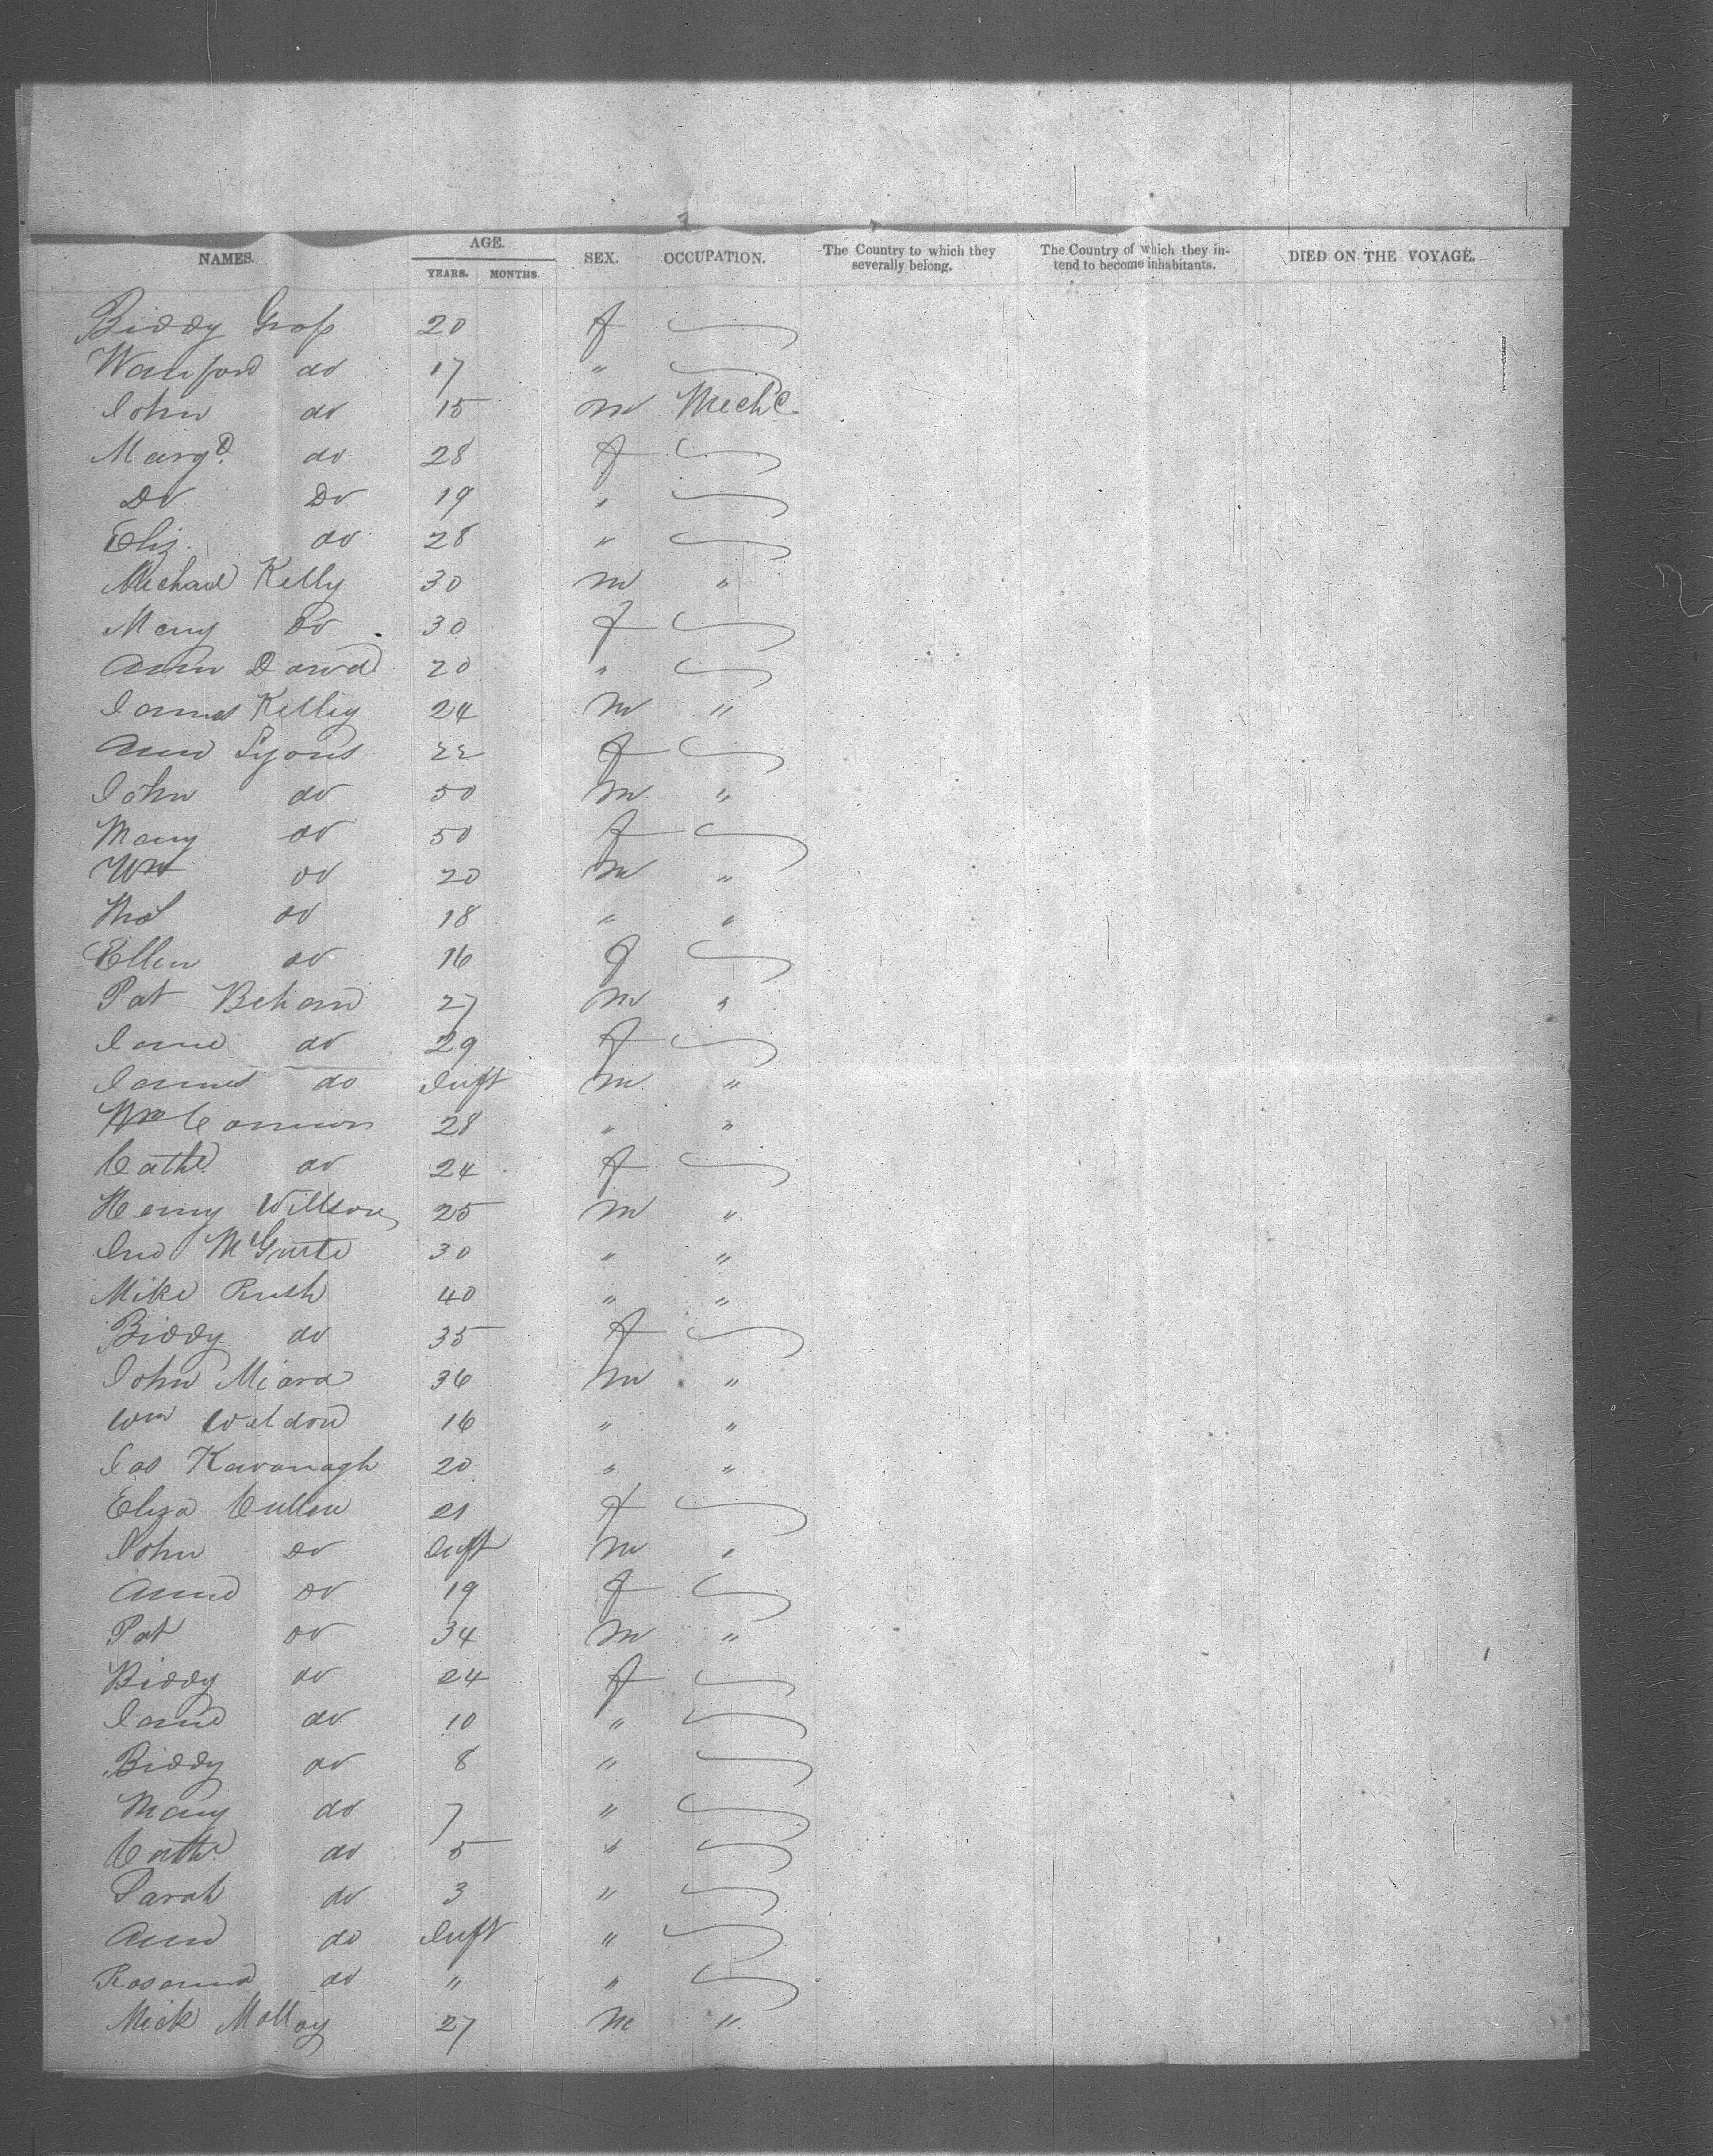 NAMES. AGE. YEARS. MONTHS. SEX. OCCUPATION. The Country to which they severally belong. The Country of which they intend to become inhabitants. DIED ON THE VOYAGE.
Biddy Gross 20 f
do 17 "
John do 15 m Mech'c
Margt. do 28 f
Do Do 19 "
Eliz. do 28 "
Michael Kelly 30 m "
Mary Do 30 f
Ann 20 "
James Kelly 24 m "
Ann Lyons 22 f
John do 50 m "
Mary do 50 f
Wm do 20 m "
do 18 " "
Ellen do 16 f
Pat Behan 27 m "
Jane do 29 f
James do Inft m "
Wm Connors 28 " "
Cathe do 24 f
Henry Willson 25 m "
Jno 30 " "
Mike Rush 40 " "
Biddy do 35 f
John Meara 36 m "
Wm Weldon 16 " "
Jas Kavanagh 20 " "
Eliza Cullen 21 f
John Do Inft m "
Ann Do 19 f
Pat Do 34 m "
Biddy do 24 f
Jane do 10 "
Biddy do 8 "
Mary do 7 "
Cathe do 5 "
Sarah do 3 "
Ann do Inft "
Rosanna do " "
Mick Molloy 27 m "